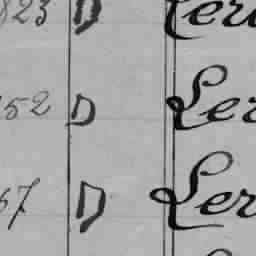 823 D Ler
52 D Ler
67 D Ler